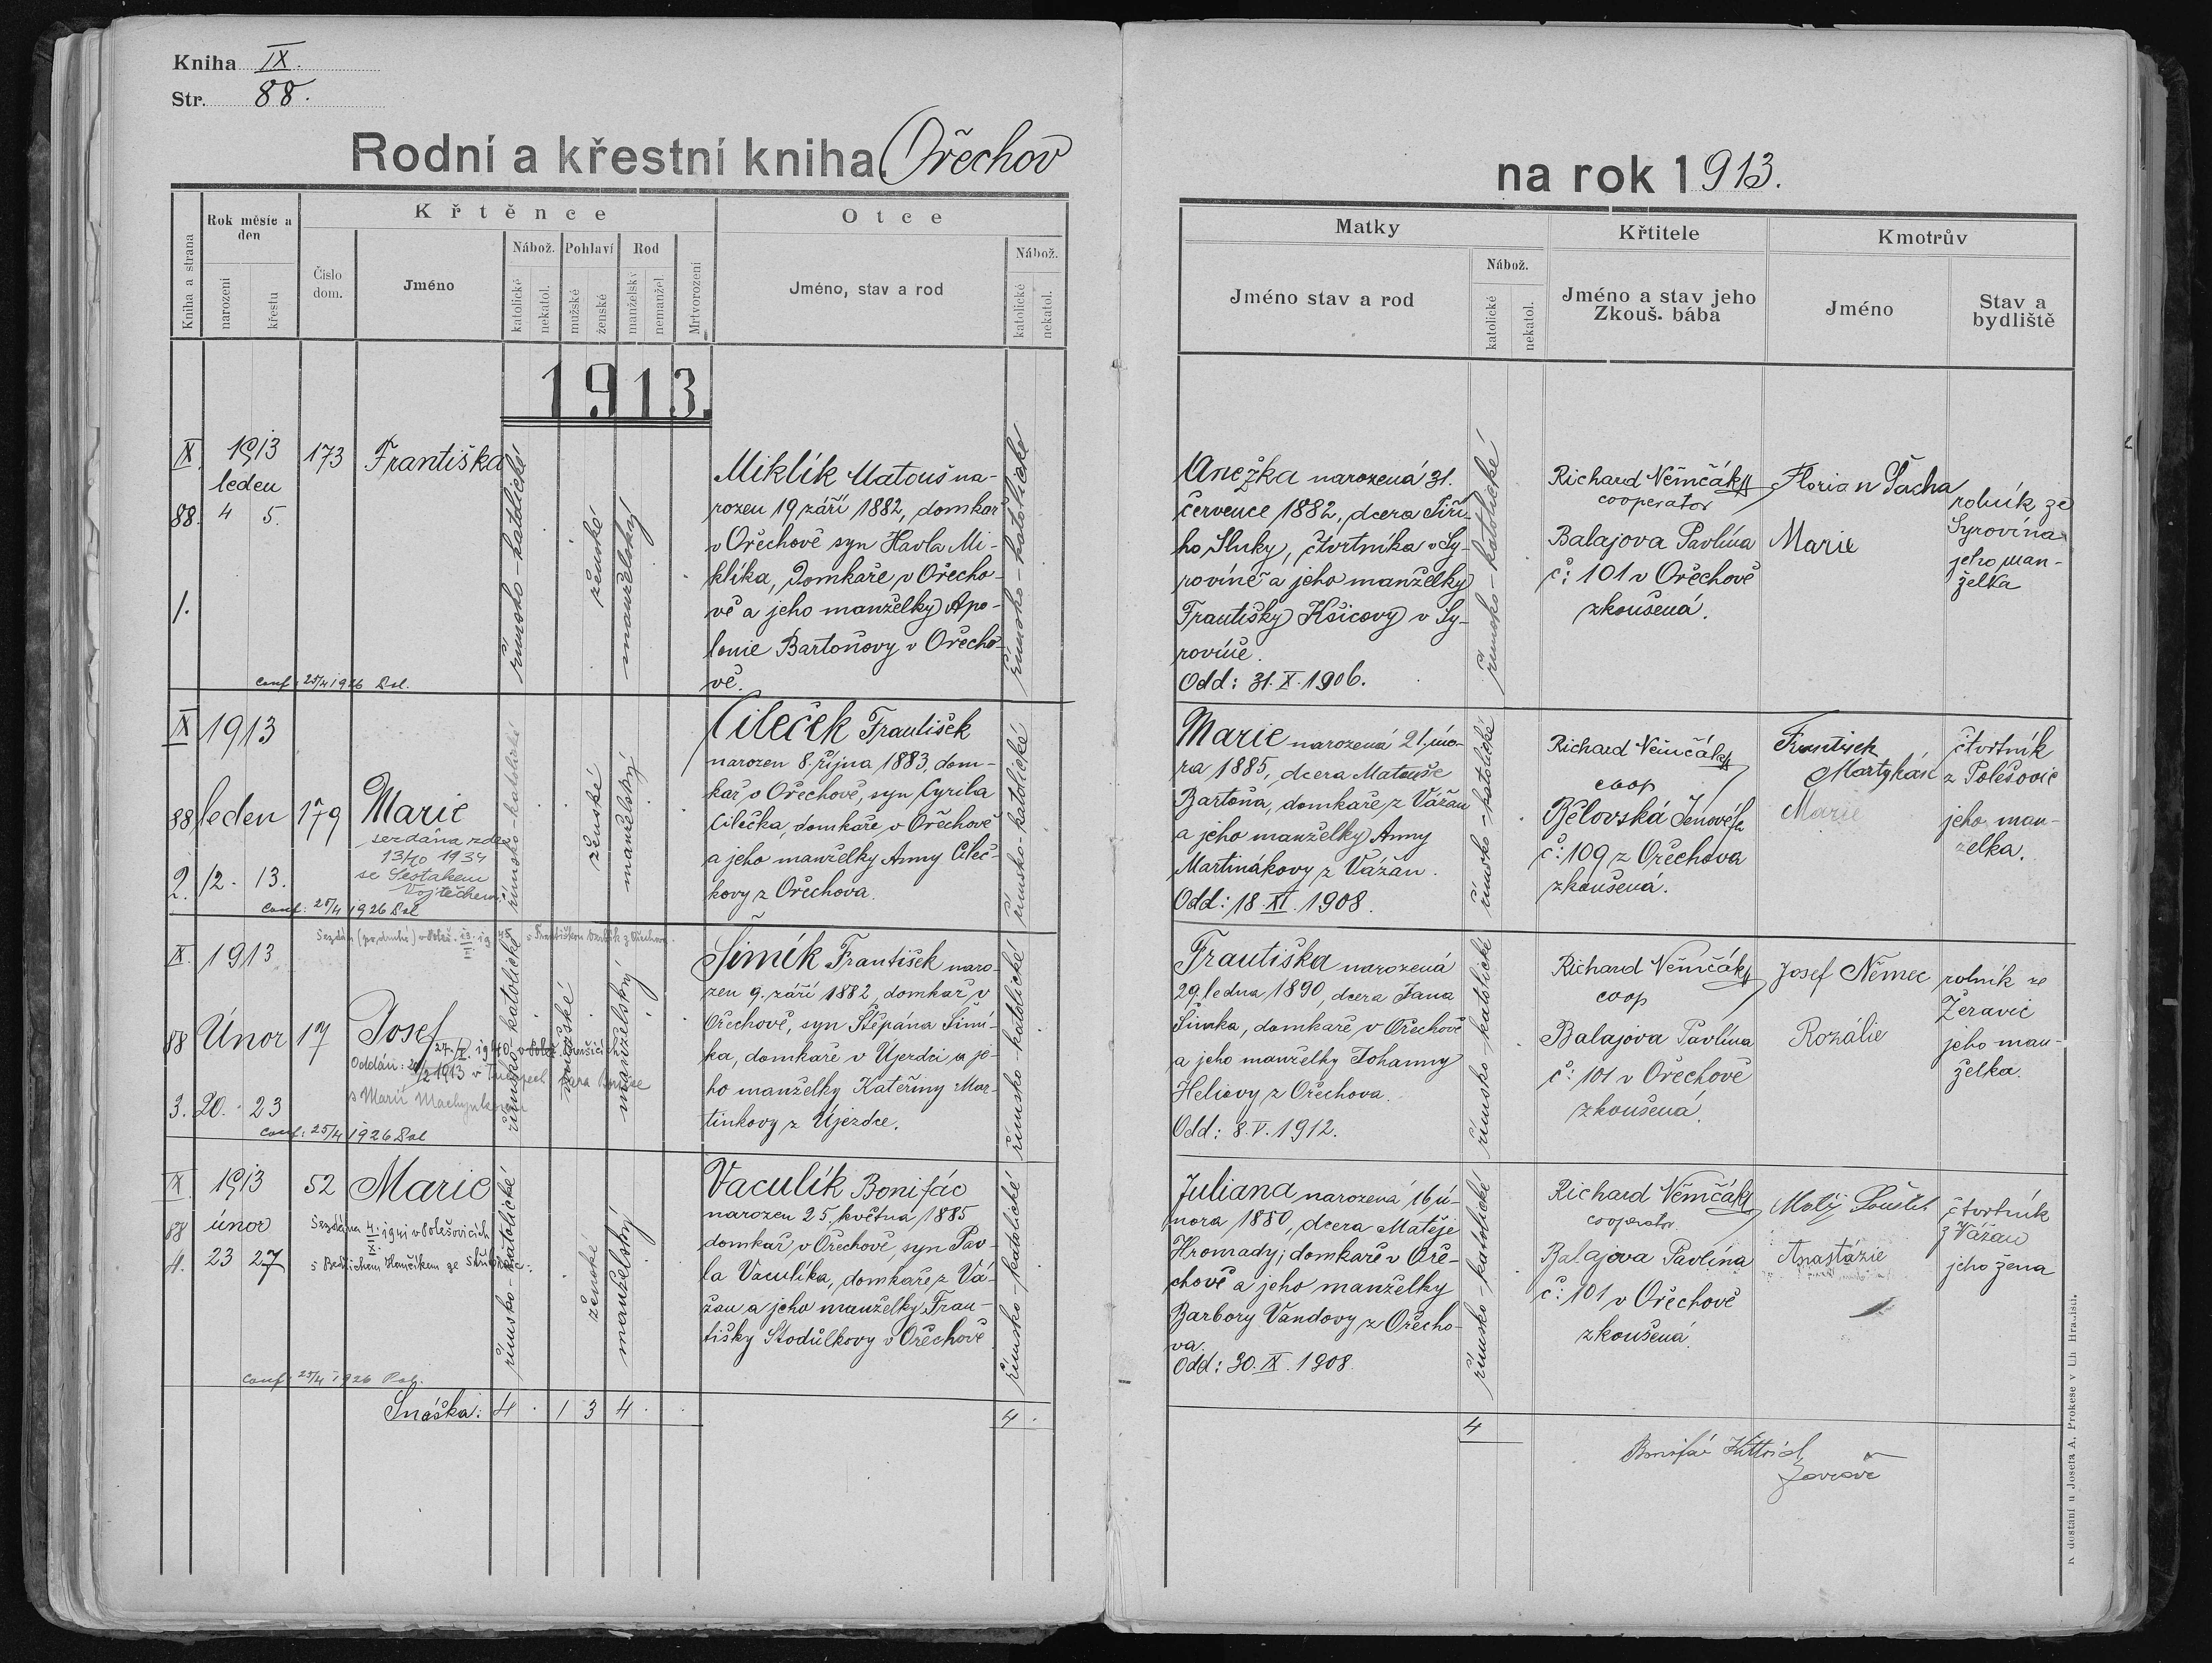 Kniha IX.
Str. 88.
Rodní a křestní kniha Ořechov
na rok 1913.
Kniha a strana
Rok měsíc a den
narození
křestu
Číslo dom.
Křtěnce
Jméno
Nábož.
katolické
nekatol.
Pohlaví
mužské
ženské
Rod
manželský
nemanžel.
Mrtvorození
Otce
Jméno, stav a rod
Nábož.
katolické
nekatol.
Matky
Jméno stav a rod
Nábož.
katolické
nekatol.
Křtitele
Jméno a stav jeho
Zkouš. bába
Kmotrův
Jméno
Stav a bydliště
1913.
IX.
88.
1.
1913
leden
4 5.
173
Františka
římsko-katolické
ženské
manželský
Miklík Matouš na-
rozen 19 září 1882, domkař
v Ořechově syn Havla Mi-
klíka, Domkaře v Ořecho-
vě a jeho manželky Apo-
lonie Bartoňovy v Ořecho-
vě.
římsko-katolické
Conf: 25/4 1926 Pol.
Anežka narozená 31.
července 1882, dcera Jiří-
ho Sluky, čtvrtníka v Sy-
rovíně a jeho manželky
Františky Kšicovy v Sy-
rovíně.
Odd: 31. X. 1906.
římsko-katolické
Richard Němčák
cooperator
Balajova Pavlína
č: 101 v Ořechově
zkoušená.
Florian Pacha
Marie
rolník ze
Syrovína
jeho man-
želka
IX
88
2.
1913
leden
12. 13.
179
Marie
sezdána zde
13/10 1934
se Šestákem
Vojtěchem.
Conf: 25/4 1926 Pol
římsko-katolické
ženské
manželský
Cileček František
narozen 8. října 1883, dom-
kář v Ořechově, syn Cyrila
Cilečka, domkaře v Ořechově
a jeho manželky Anny Cileč-
kovy z Ořechova.
římsko-katolické
Marie narozená 21. úno-
ra 1885, dcera Matouše
Bartoňa, domkaře z Vážan
a jeho manželky Anny
Martinákovy z Vážan.
Odd: 18. XI. 1908.
římsko-katolické
Richard Němčák
coop
Bělovská Jenovéfa
č: 109 z Ořechova
zkoušená.
František
Martykán
Marie
čtvrtník
z Polešovic
jeho man-
želka.
IX.
88
3.
1913
Únor
20. 23
17
Josef
Oddán:
s Marií
Conf: 25/4 1926 Pol
římsko-katolické
mužské
manželský
Šimík František naro-
zen 9. září 1882, domkař v
Ořechově, syn Štěpána Šimí-
ka, domkaře v Újezdci a je-
ho manželky Kateřiny Mar-
tinkovy z Újezdce.
římsko-katolické
Františka narozená
29. ledna 1890, dcera Jana
Šimka, domkaře v Ořechově
a jeho manželky Johanny
Heliovy z Ořechova.
Odd: 8. V. 1912.
římsko-katolické
Richard Němčák
coop
Balajova Pavlína
č: 101 v Ořechově
zkoušená.
Josef Němec
Rozálie
rolník ze
Žeravic
jeho man-
želka.
IX
88
4.
1913
únor
23 27
52
Marie
Sezdána 4. 1941 v Polešovicích
s Bedřichem
Conf: 25/4 1926 Pol.
římsko-katolické
ženské
manželský
Vaculík Bonifác
narozen 25. května 1885
domkař v Ořechově, syn Pav-
la Vaculíka, domkaře z Vá-
žan a jeho manželky Fran-
tišky Stodůlkovy v Ořechově
římsko-katolické
Juliana narozená 16 ú-
nora 1880, dcera Matěje
Hromady, domkaře v Oře-
chově a jeho manželky
Barbory Vandovy z Ořecho-
va.
Odd: 30. IX. 1908
římsko-katolické
Richard Němčák
cooperator.
Balajova Pavlína
č: 101 v Ořechově
zkoušená
Anastázie
čtvrtník
z Vážan
jeho žena
Snáška: 4 . 1 3 4 . .
4 .
4
K dostání u Josefa A. Prokese v Uh. Hradišti.